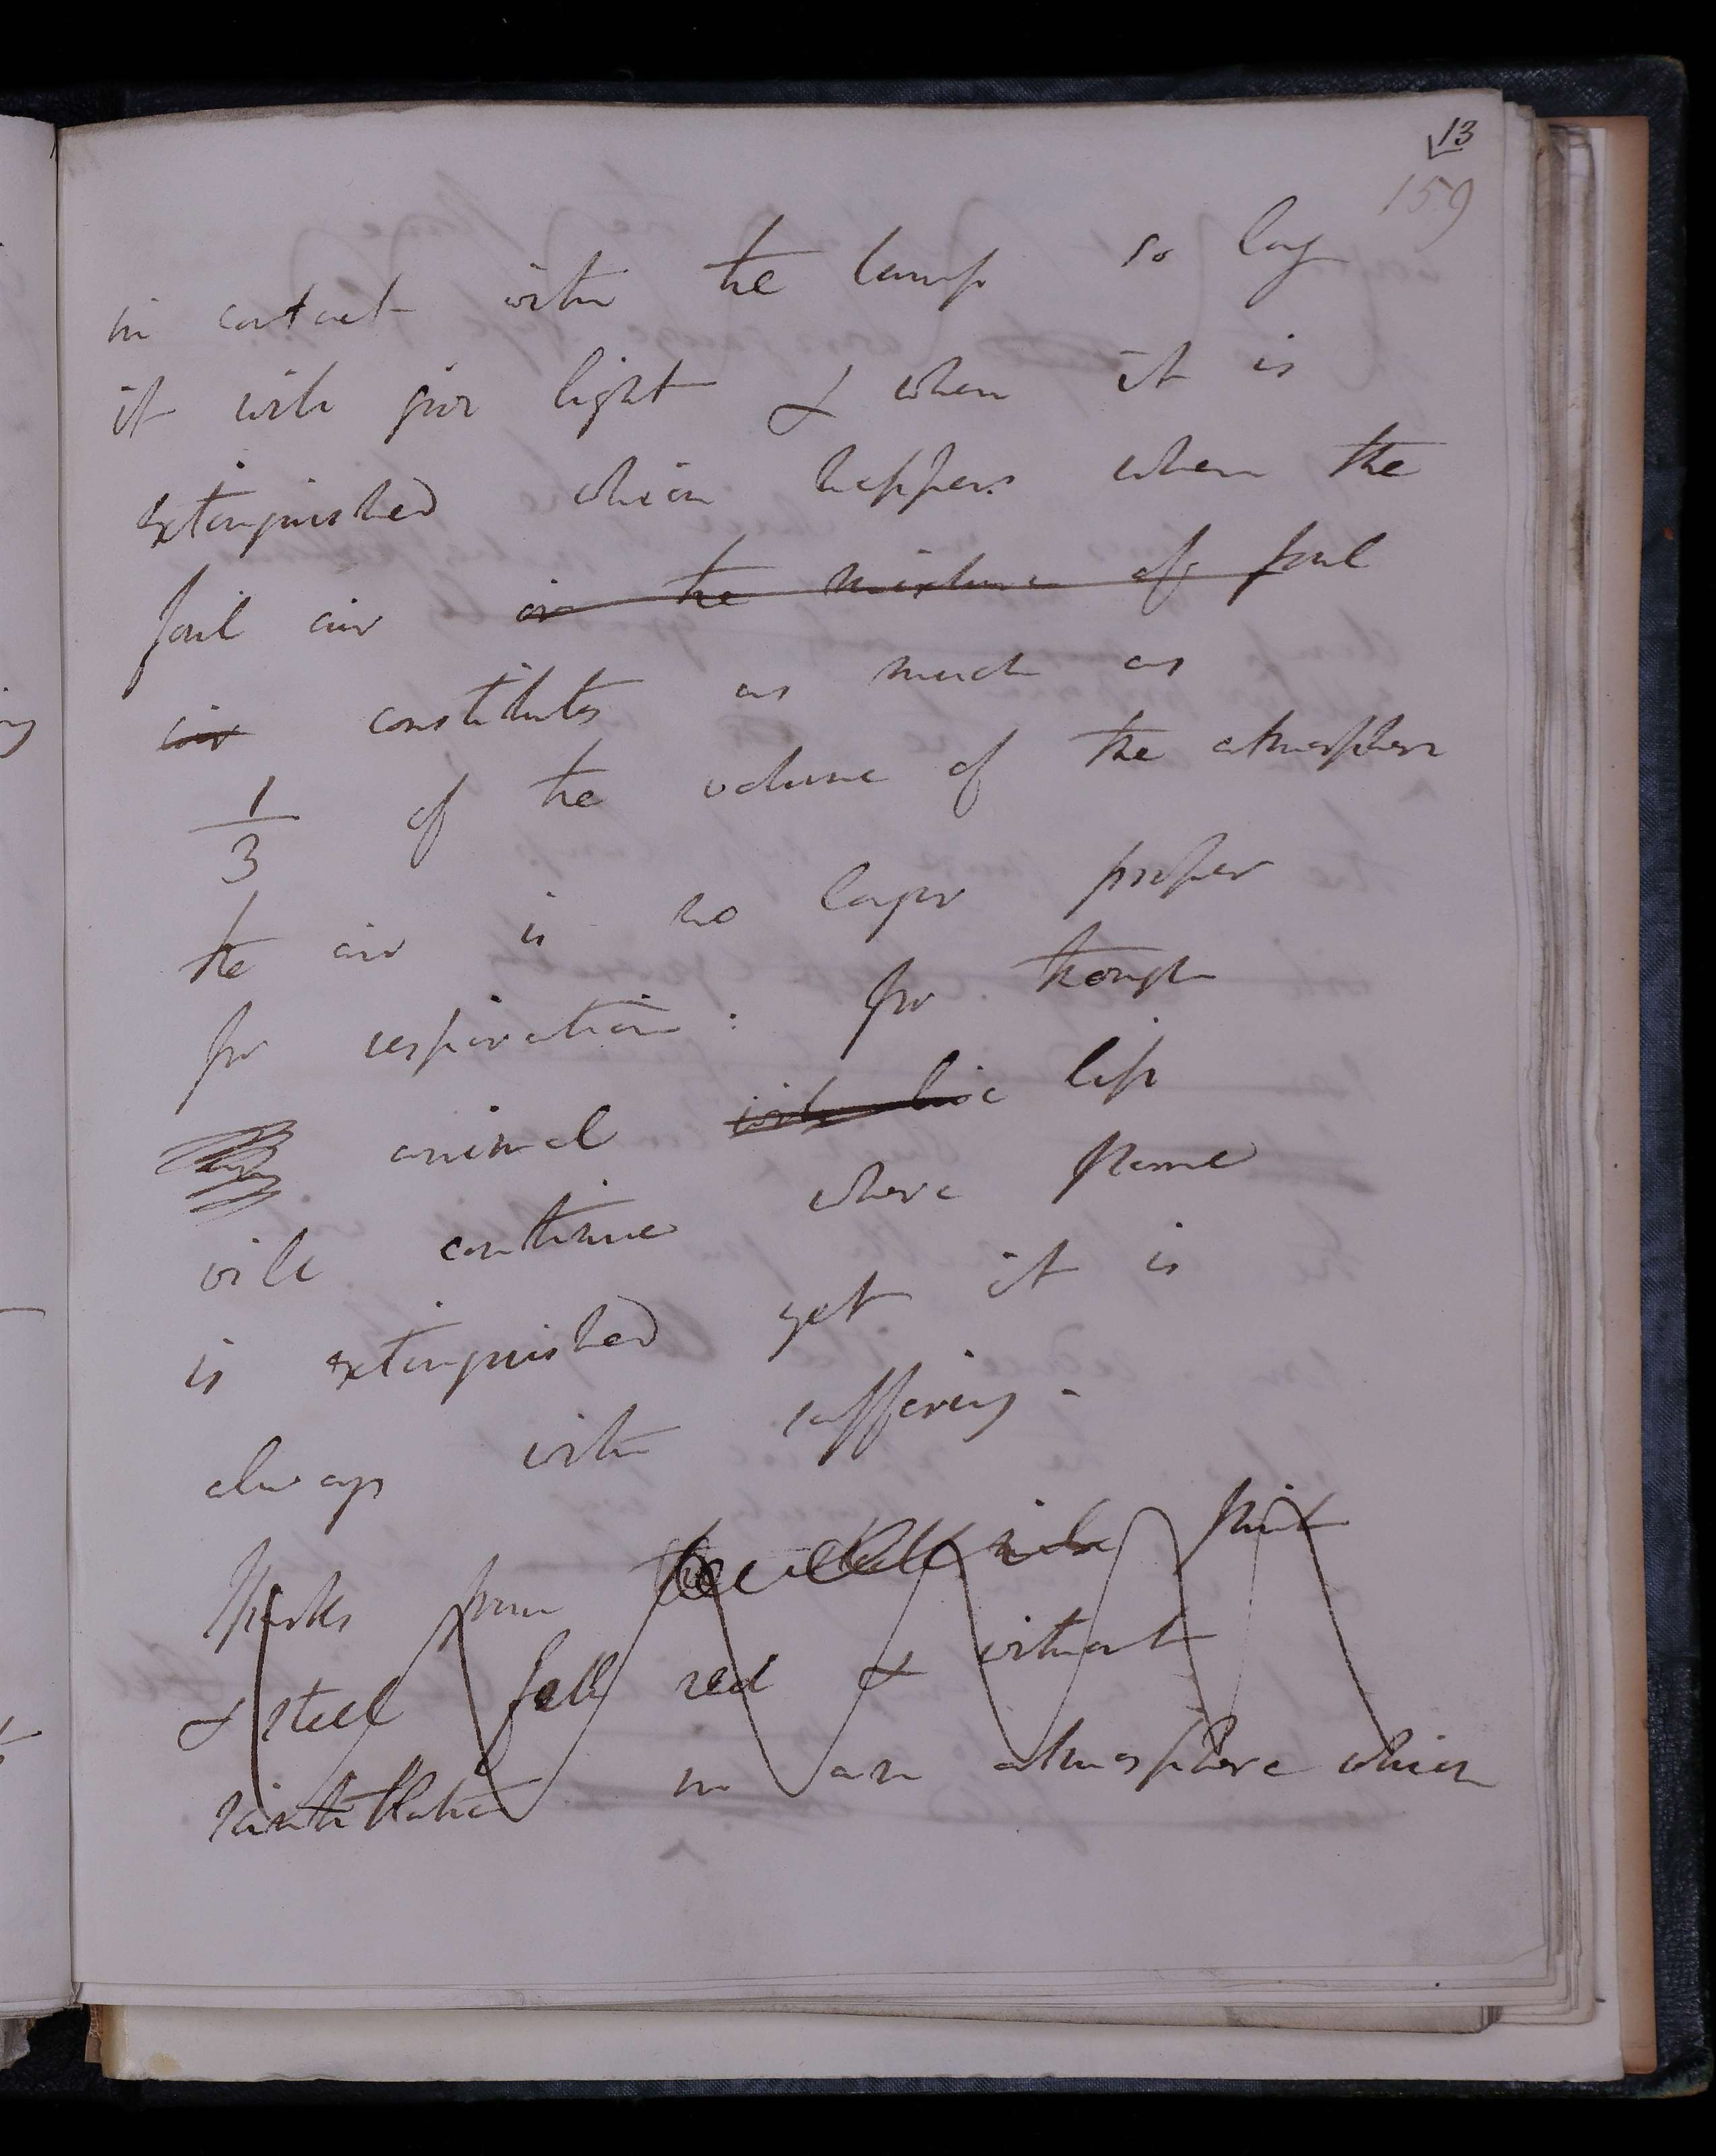 13
159
in contact with the lamp so long
it will give light & when it is
extinguished which happens when the
foul air or the mixture of foul
air constitutes as much as
1/3 of the volume of the atmosphere
the air is no longer proper
for respiration: for though
animal will live life
will continue where flame
is extinguished yet it is
always with suffering -
Sparks from the flint
& steel fall red & without
scintillation in an atmosphere which